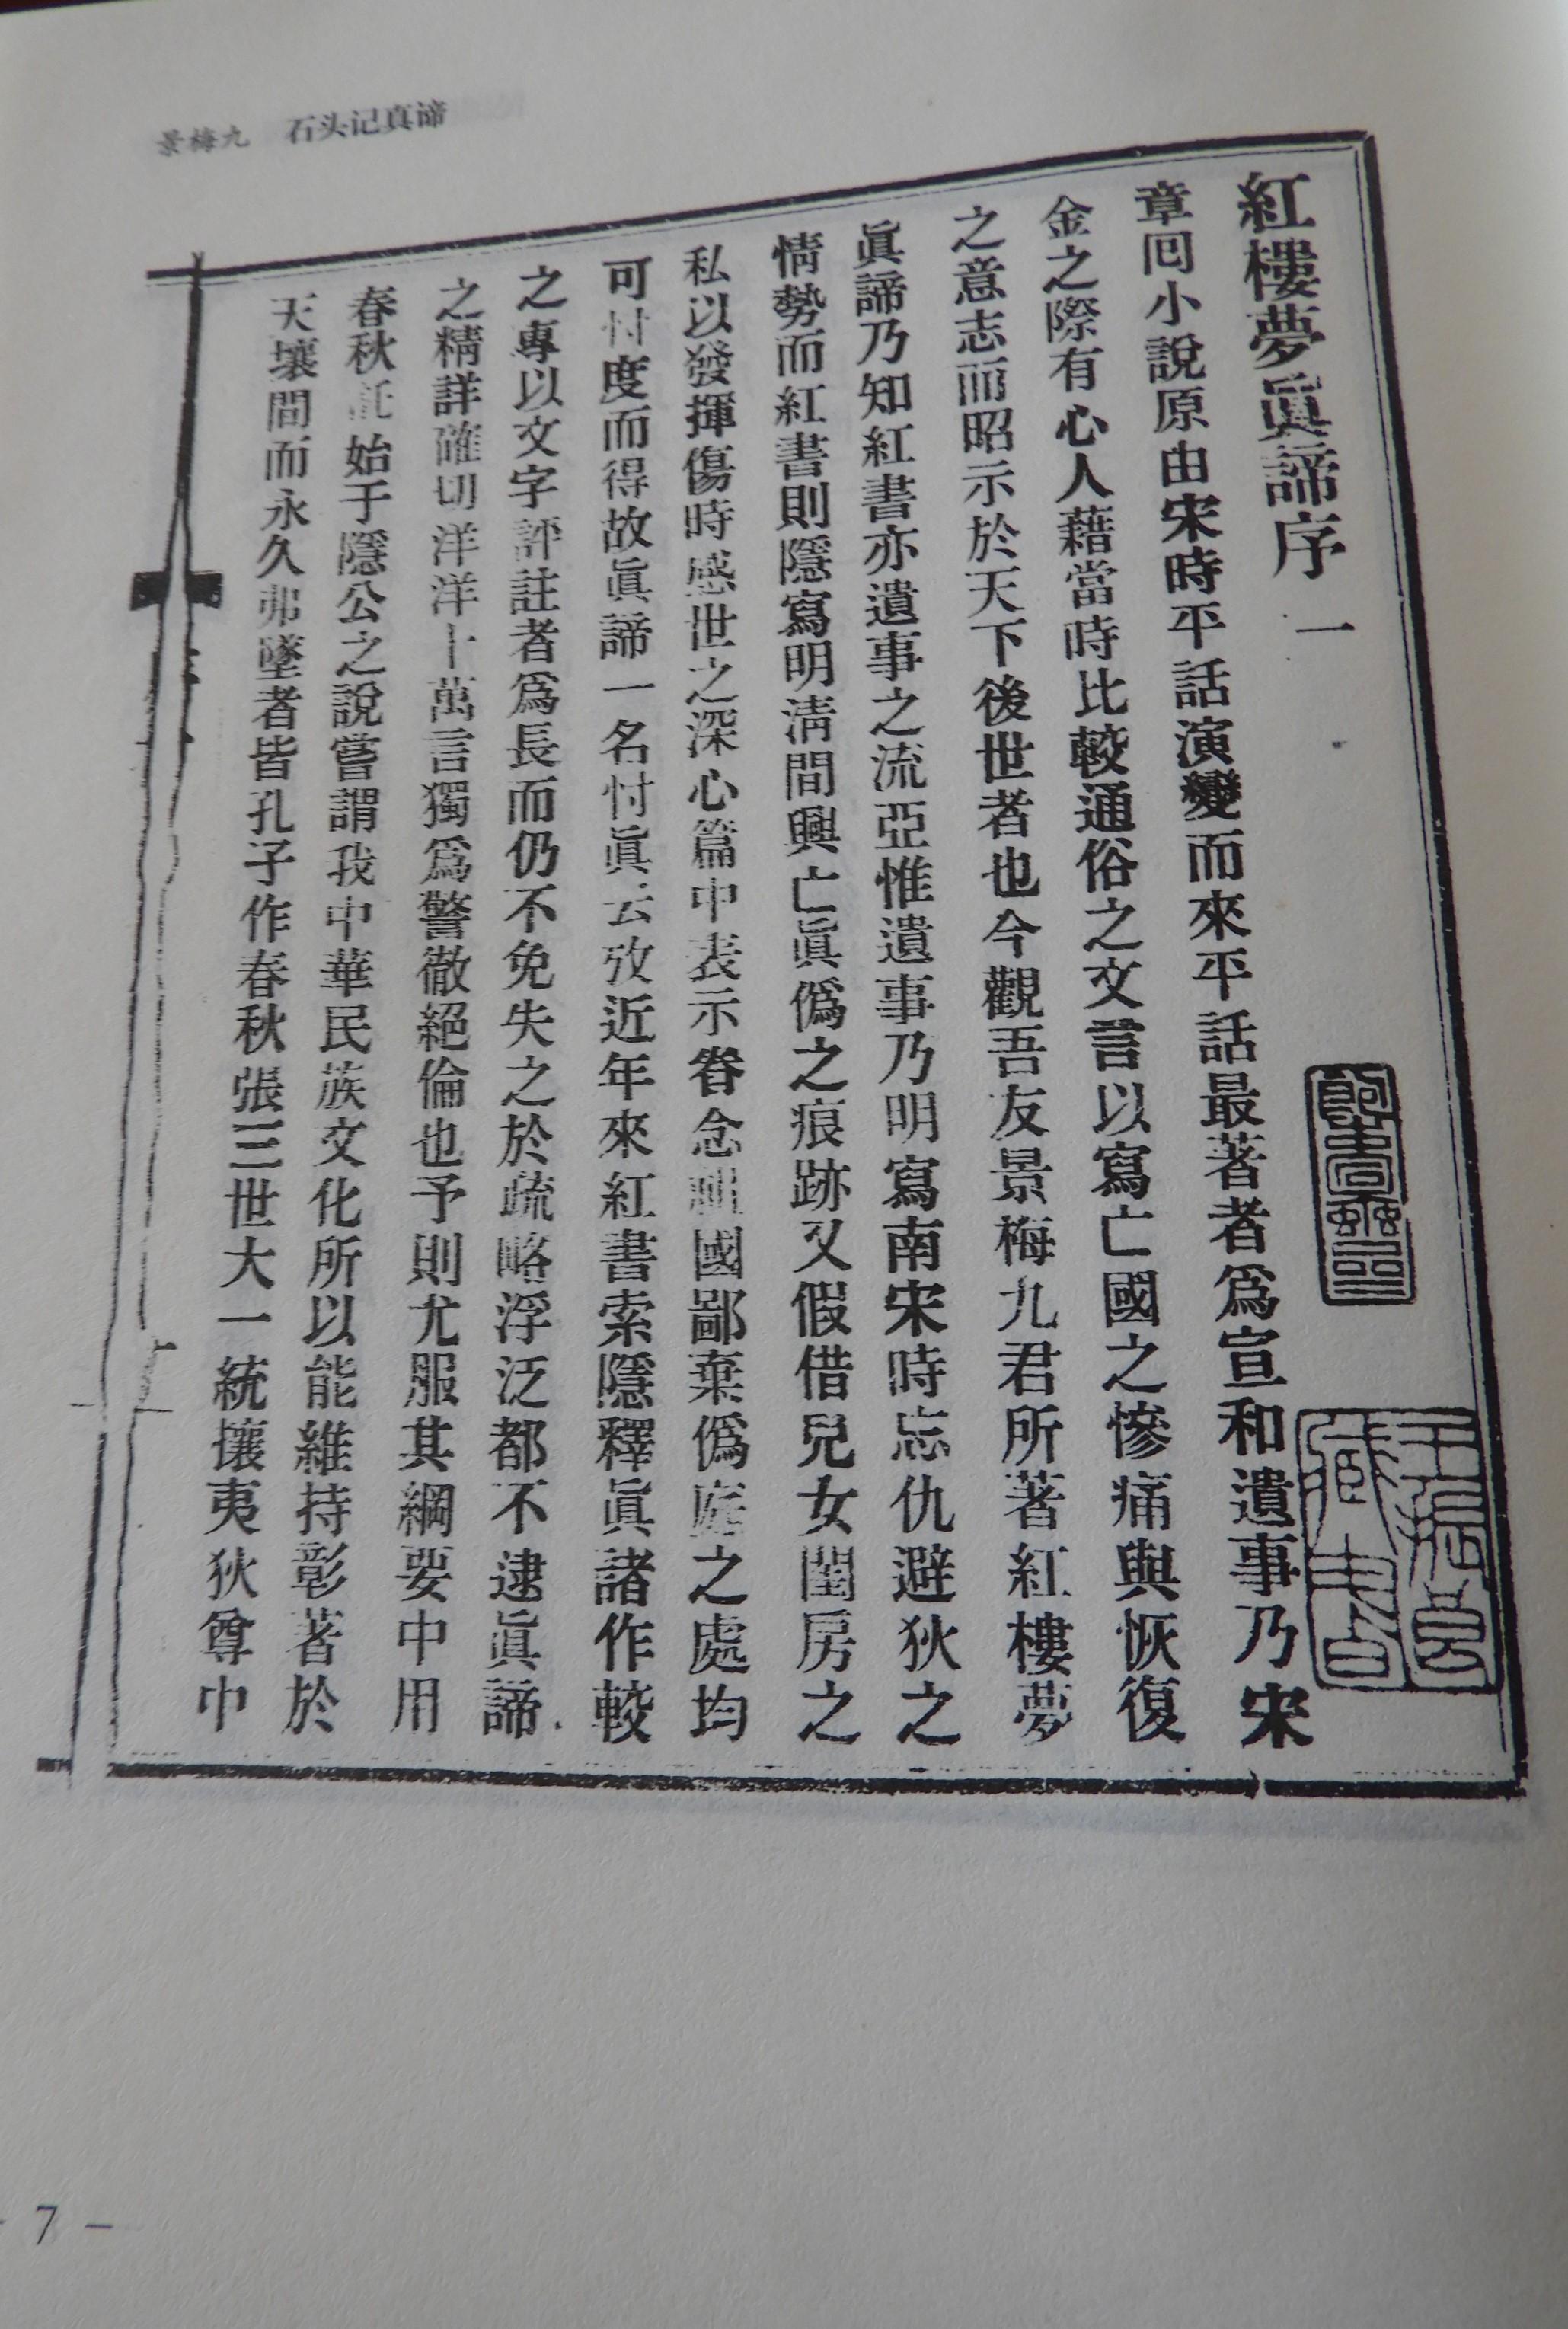 景梅九 石头记真谛
紅樓夢眞諦序一
章囘小說原由宋時平話演變而來平話最著者爲宣和遺事乃宋
金之際有心人藉當時比較通俗之文言以寫亡國之慘痛與恢復
之意志而昭示於天下後世者也今觀吾友景梅九君所著紅樓夢
眞諦乃知紅書亦遺事之流亞惟遺事乃明寫南宋時忘仇避狄之
情勢而紅書則隱寫明淸間興亡眞僞之痕跡又假借兒女閨房之
私以發揮傷時感世之深心篇中表示眷念祖國鄙棄僞庭之處均
可忖度而得故眞諦一名忖眞云攷近年來紅書索隱釋眞諸作較
之專以文字評註者爲長而仍不免失之於疏略浮泛都不逮眞諦
之精詳確切洋洋十萬言獨爲警徹絕倫也予則尤服其綱要中用
春秋託始于隱公之說嘗謂我中華民族文化所以能維持彰著於
天壤間而永久弗墜者皆孔子作春秋張三世大一統攘夷狄尊中
- 7 -